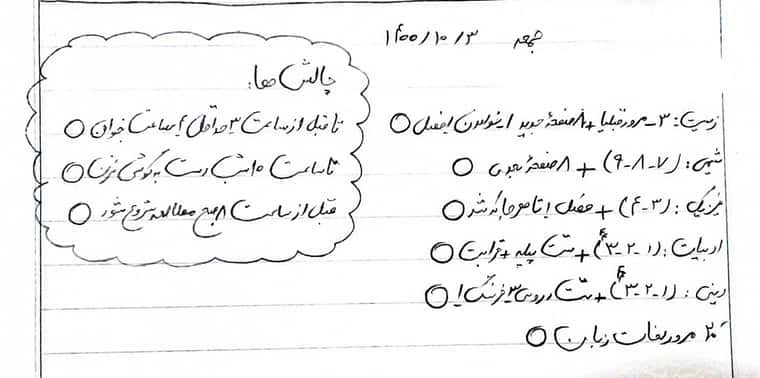 جمعه ۱۴۰۰/۱۰/۳
زیست: ۳ـ مرور قبلیا + ۸ صفحهٔ جدید /
شیمی: (۷-۸-۹) + ۸ صفحهٔ بعدی
فیزیک: (۳-۴) + فصل ۱ تا هرجا که شد
ادبیات: (۱-۲-۳-۴) + تست پایه + قرابت
دینی: (۱-۲-۳-۴) + تست دروس
۲۰ مرور لغات زبان
چالش‌ها:
تا قبل از ساعت ۳ حداقل ۶ ساعت بخوان
تا ساعت ۱۰ شب دست به گوشی نزن
قبل از ساعت ۸ صبح مطالعه شروع شود